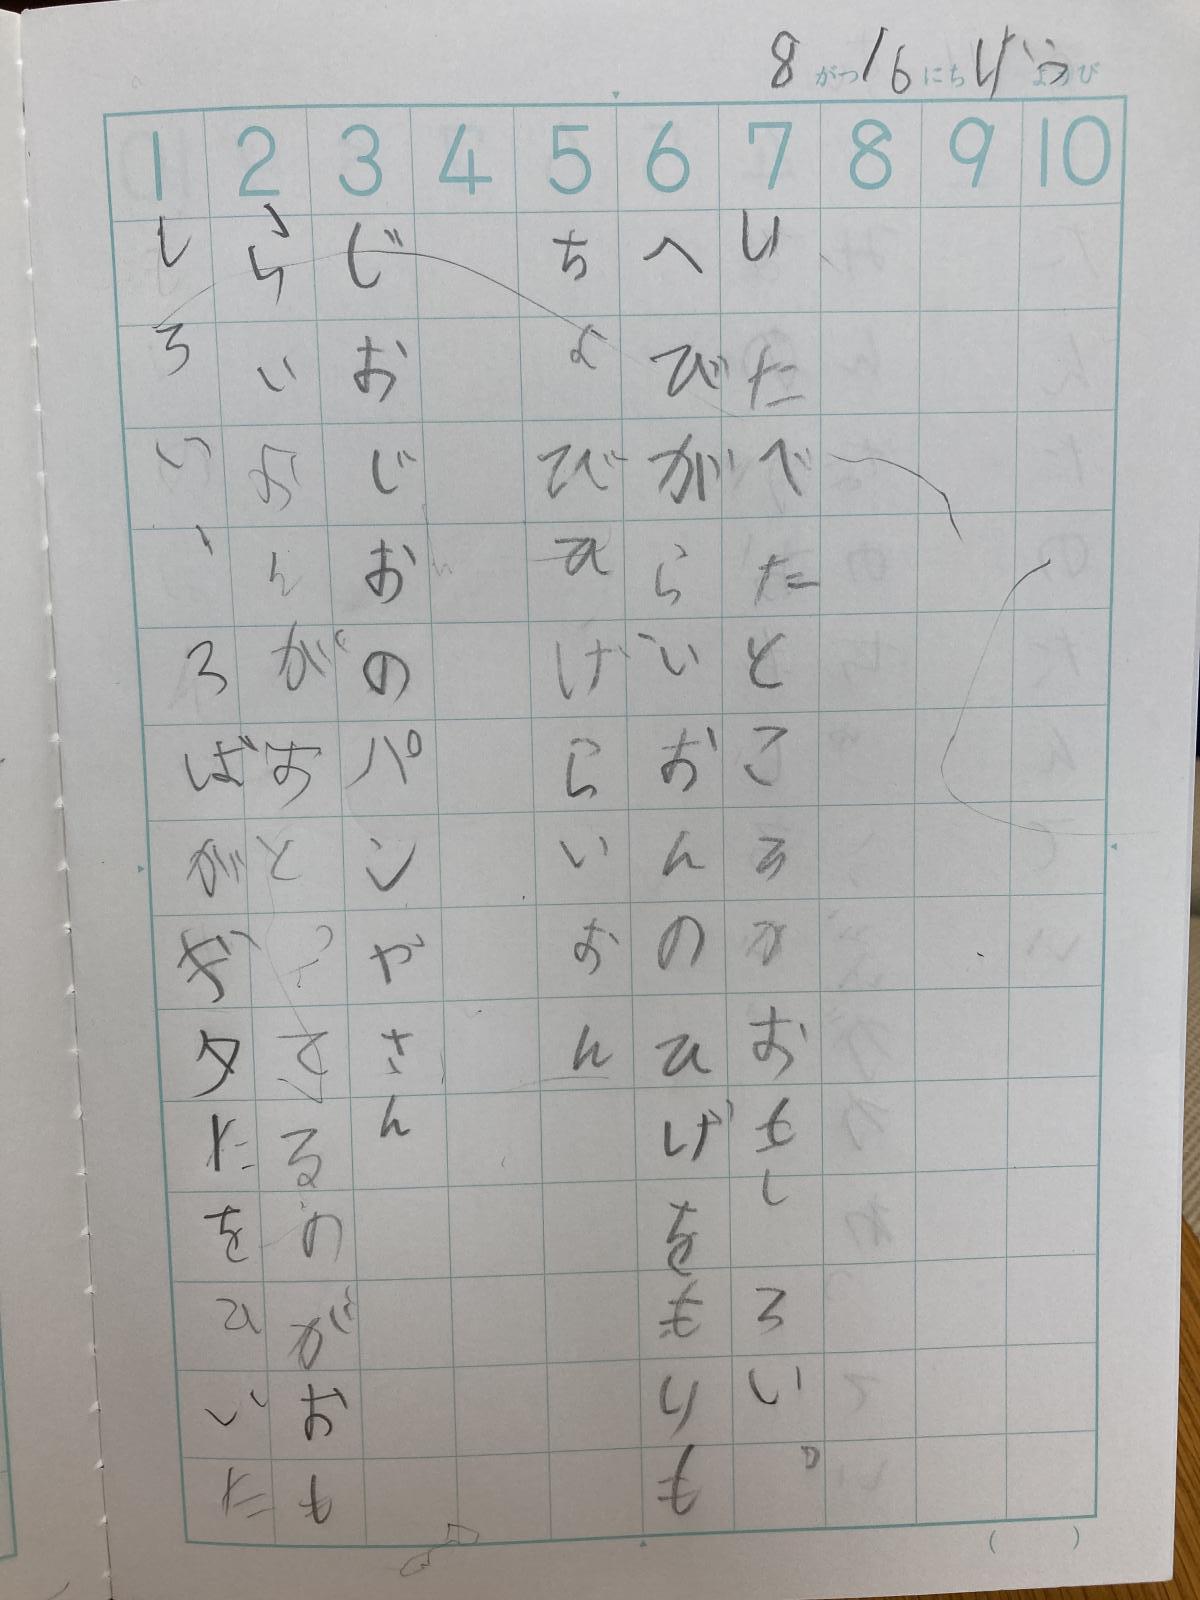 8がつ16にちげようび
1 2 3 4 5 6 7 8 9 10
しろい、ろばがギタたをひいた
らいおんがおとってるのがおも
じおじおのパンやさん
ちよびひげらいおん
へびがらいおんのひげをもりも
りたべたところかおもしろい。